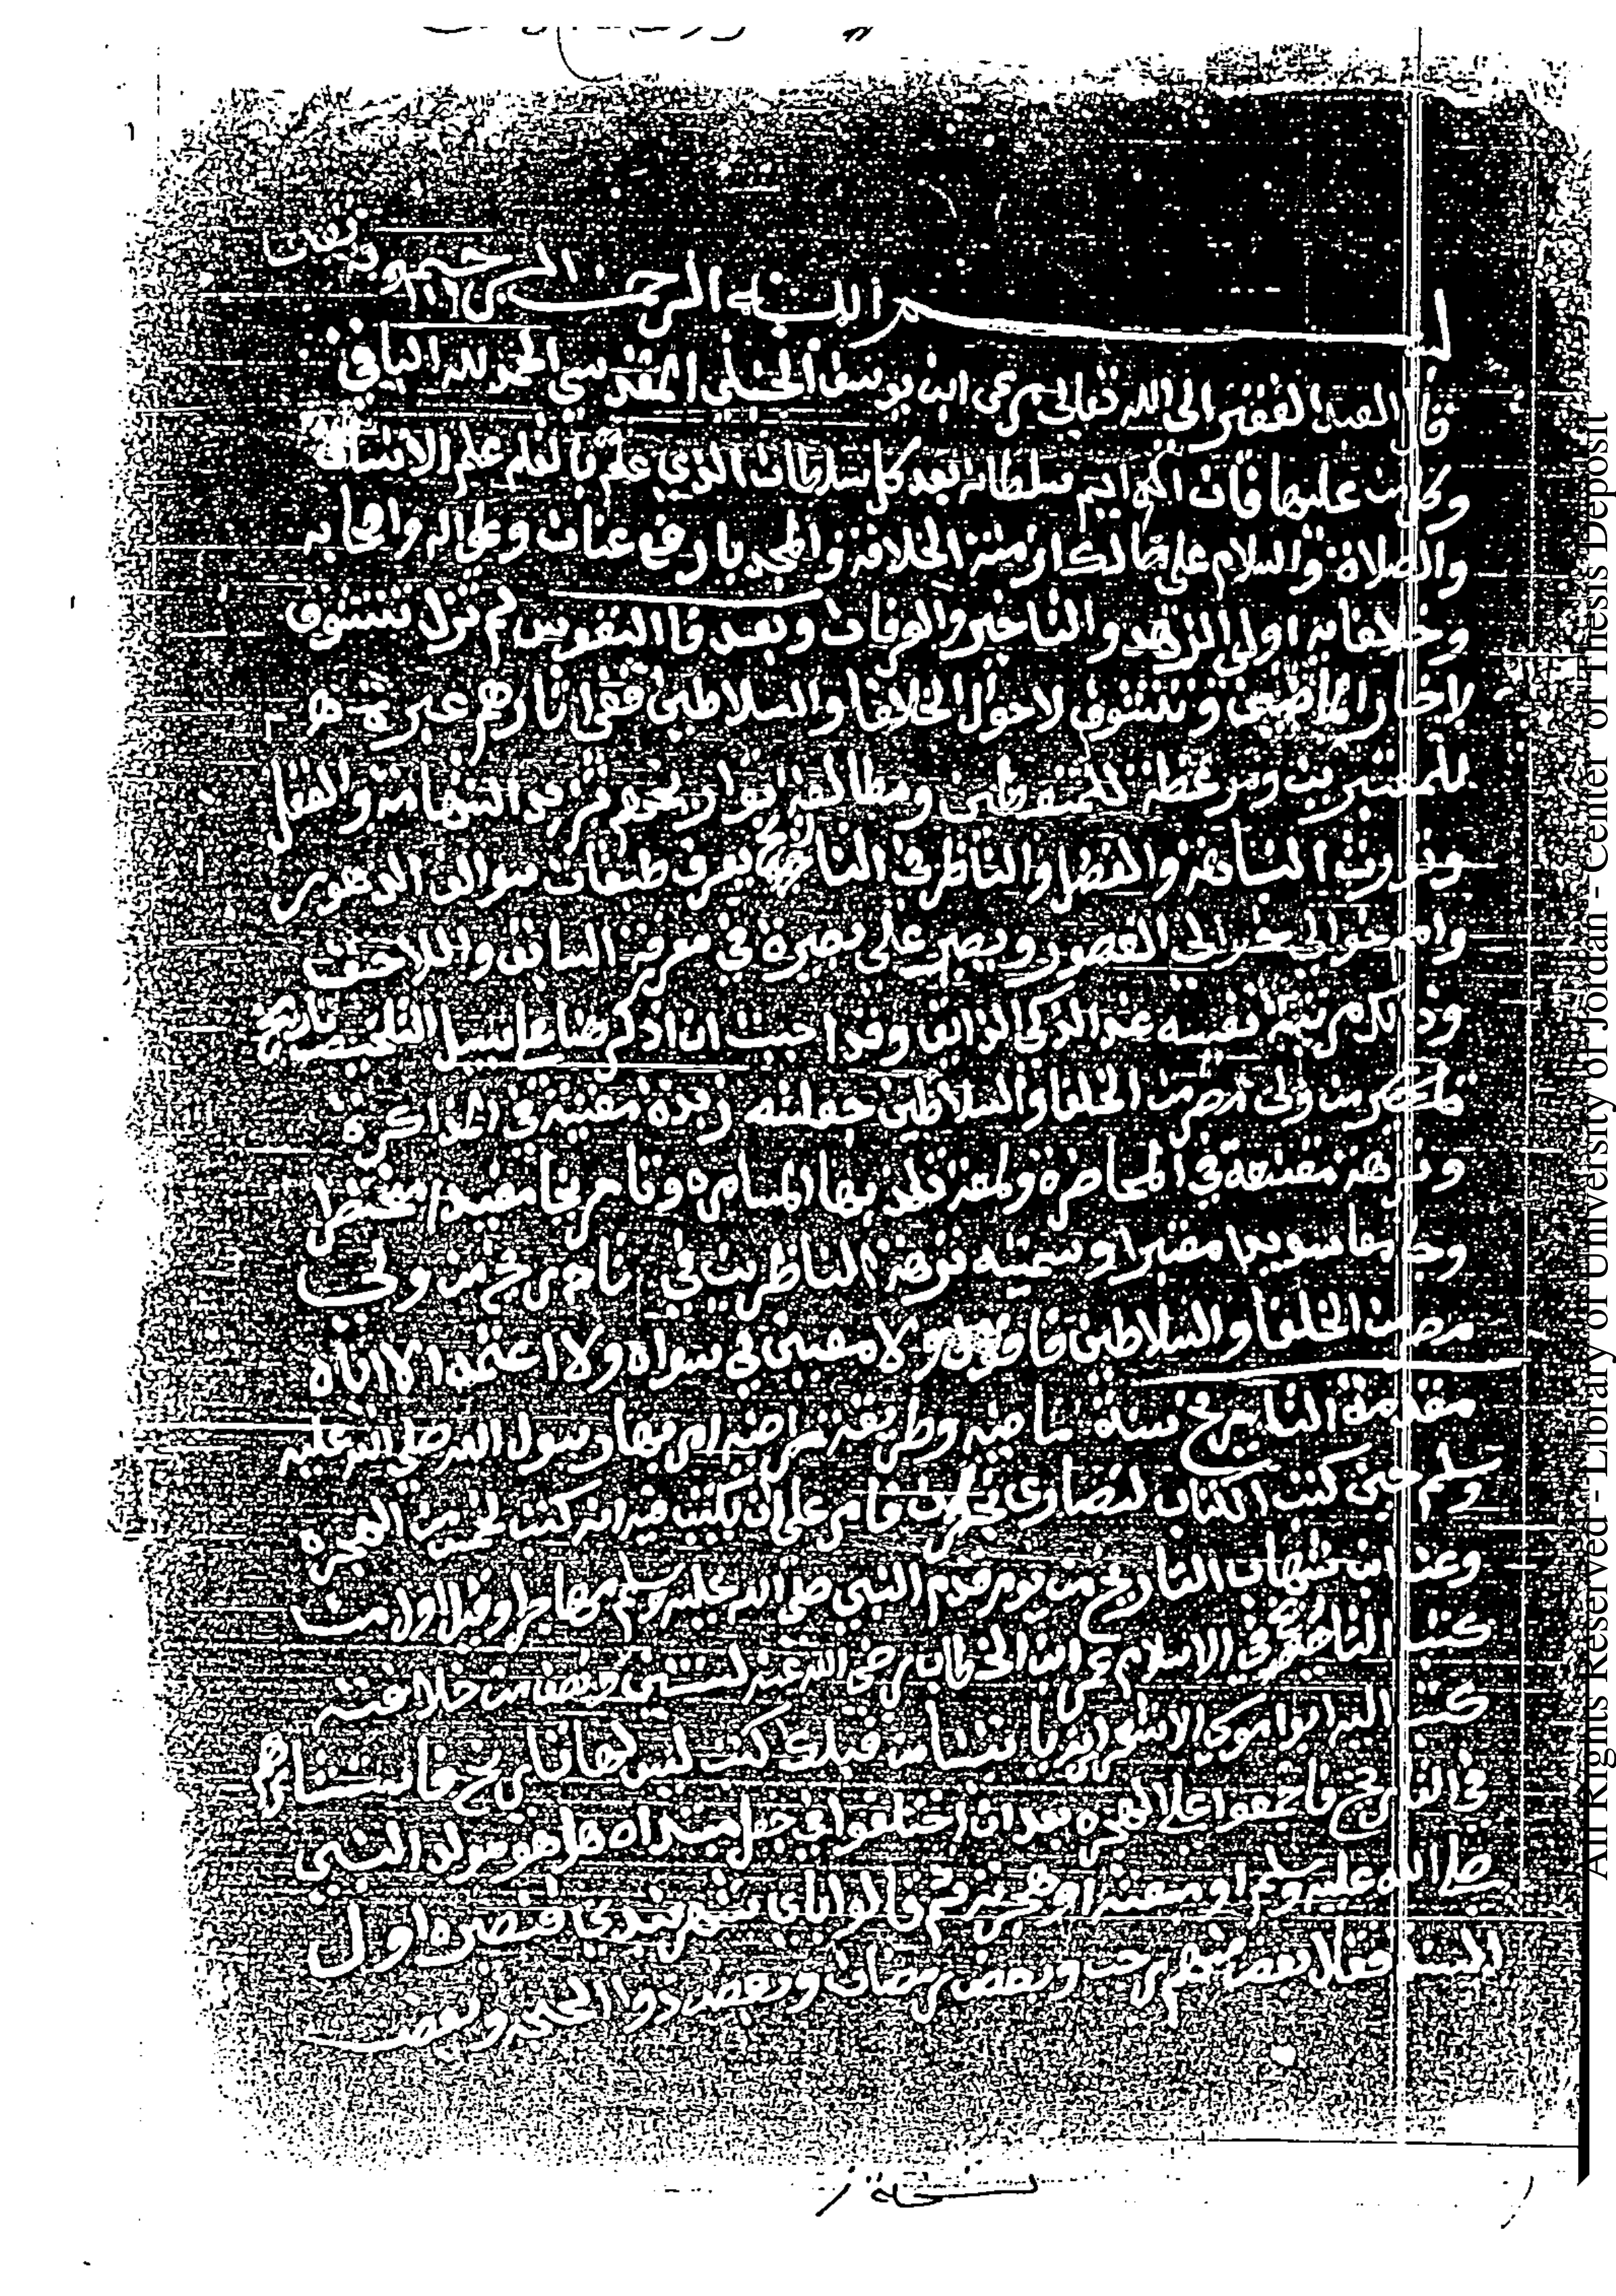 بسم الله الرحمن الرحيم وبه ثقتنا
قال العبد الفقير الى الله تعالى مرعي ابن يوسف الحنبلي المقدسي الحمد لله الباقي
وكل من عليها فان الدايم سلطانه بعد كل سلطان الذي علم بالقلم علم الانسان
والصلاة والسلام على الخلافة والمجد بارفع عنان وعلى اله واصحابه
وخلافايه اولى الزهد والعرفان وبعد فا النفوس لم تزل تتشوق
لاخبار الماضين وتتشوف لاحول الخلافا والسلاطين ففي اثارهم عبرة
للمعتبرين وموعظة للمتيقظين ومطالعة تواريخهم تزيد النباهة والعقل
وتورث النباهة والفضل والناظر في التاريخ يعرف طبقات سوالف الدهور
العصور ويصير على بصيرة في معرفة السابق واللاحق
نفيسه عند الذكي وقد احببت ان اذكر هنا على سبيل التلخيص تاريخ
من ولى مصر من الخلفا والسلاطين جعلته زبدة مغنية في المذاكرة
ونزهة مقنعة في المحاضرة ولمعة تلذ بها المسامره وتاريخا مفيدا مختصرا
معتبرا وسميته نزهة الناظرين في تاريخ من ولى
مصر من الخلفا والسلاطين فاقول ولا معين لي سواه ولا اعتمد الا اياه
مقدمة التاريخ سنة ماضيه وطريقة راضيه امر بها رسول الله صلى الله عليه
وسلم حين كتب الكتاب لنصارى نجران فامر على ان يكتب فيه انه كتب لخمس من الهجره
وعند ابن شهاب التاريخ من يوم قدم النبي صلى الله عليه وسلم مهاجرا وقيل اول من
كتب التاريخ في الاسلام عمر ابن الخطاب رضي الله عنه لسنتين ونصف من خلافته
كتب اليه ابو موسى الاشعري انه ياتينا من قبلك كتب ليس لها تاريخ فاستشارهم
في التاريخ فاجمعوا على الهجره بعد ان اختلفوا في جعل مبتداه هل هو مولد النبي
صلى الله عليه وسلم او مبعثه او هجرته ثم قالوا باي شهر نبتدي فنصره اول
السنه فقال بعضهم رجب وبعض رمضان وبعض ذوا الحجه وبعض
نسخة ز
All Rights Reserved - Library of University of Jordan - Center of Thesis Deposit